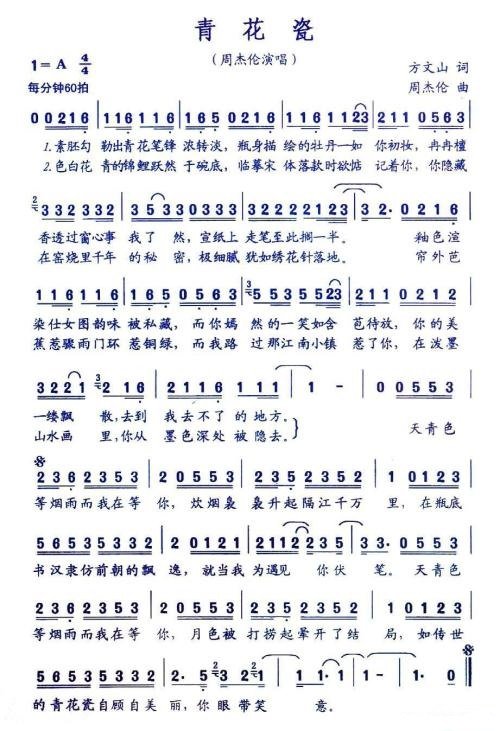 青花瓷
(周杰伦演唱)
1=A 4/4
方文山 词
每分钟60拍
周杰伦 曲
0 0216 116116 0165 0216 11611123 211 0563
1.素胚勾 勒出青花笔锋 浓转淡, 瓶身描 绘的牡丹一如 你初妆, 冉冉檀
2.色白花 青的锦鲤跃然 于碗底, 临摹宋 体落款时欲惦 记着你, 你隐藏
332332 3533 0333 33323523 32· 0216
香透过窗心事 我了 然, 宣纸上 走笔至此搁一半。 釉色渲
在窑烧里千年 的秘 密, 极细腻 犹如绣花针落地。 帘外芭
116116 0165 0216 5535523 211 0212
染仕女图韵味 被私藏, 而你嫣 然的一笑如含 苞待放, 你的美
蕉惹骤雨门环 惹铜绿, 而我路 过那江南小镇 惹了你, 在泼墨
3221 216 0216 111 1 - 0 0553
一缕飘 散, 去到 我去不了 的地方。 天青色
山水画 里, 你从 墨色深处 被隐去。
236 2353 2 0553 235 2352 1 0123
等烟雨而我在等 你, 炊烟袅 袅升起隔江千万 里, 在瓶底
56535335 2 0201 2122 33· 0553
书汉隶仿前朝的飘 逸, 就当我 为遇见 你伏 笔。 天青色
236 2353 2 0553 235 2352 1 0123
等烟雨而我在等 你, 月色被 打捞起晕开了结 局, 如传世
56535332 2· 5 3 2 1 1 - - 0
的青花瓷自顾自美 丽, 你眼 带笑 意。